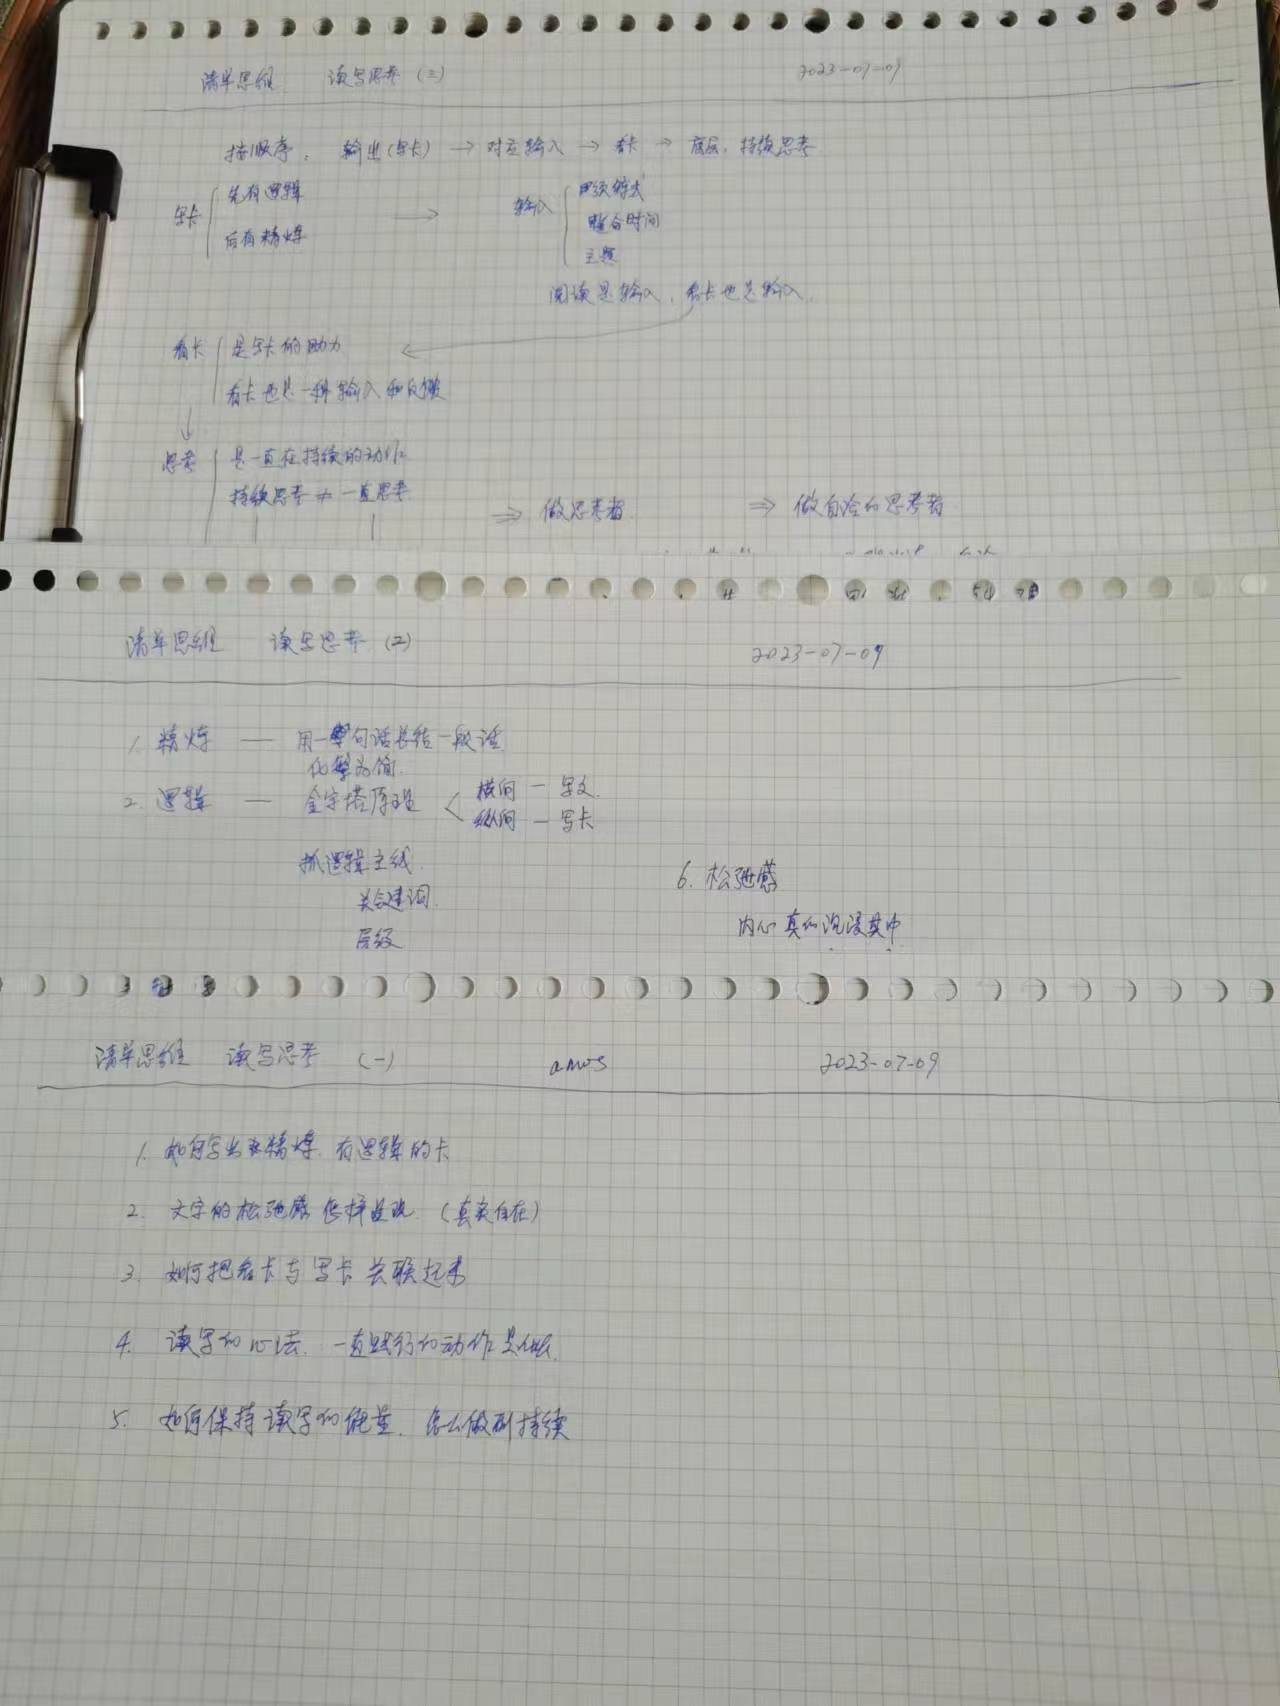 清单思维 读写思考 (三) 2023-07-09
按顺序. 输出(写卡) → 对应输入 → 看卡 → 底层. 持续思考
写卡 先有逻辑 → 输入
后有精炼 整合时间
主题
阅读是输入, 看卡也是输入.
看卡 是写卡的助力 ←
看卡也是一种输入和反馈
↓
思考 是一直在持续的动作
持续思考 ≠ 一直思考 ⇒ 做思考者 ⇒ 做自洽的思考者
清单思维 读写思考 (二) 2023-07-09
1. 精炼 — 用一句话总结一段话
化繁为简.
2. 逻辑 — 金字塔原理 < 横向 — 写文
纵向 — 写卡
抓逻辑主线.
关键词.
层级
6. 松弛感
内心真的沉浸其中
清单思维 读写思考 (一) amos 2023-07-09
1. 如何写出精炼. 有逻辑的卡
2. 文字的松弛感怎样呈现. (真实自在)
3. 如何把看卡与写卡关联起来
4. 读写的心法. 一直践行的动作是什么.
5. 如何保持读写的能量. 怎么做到持续